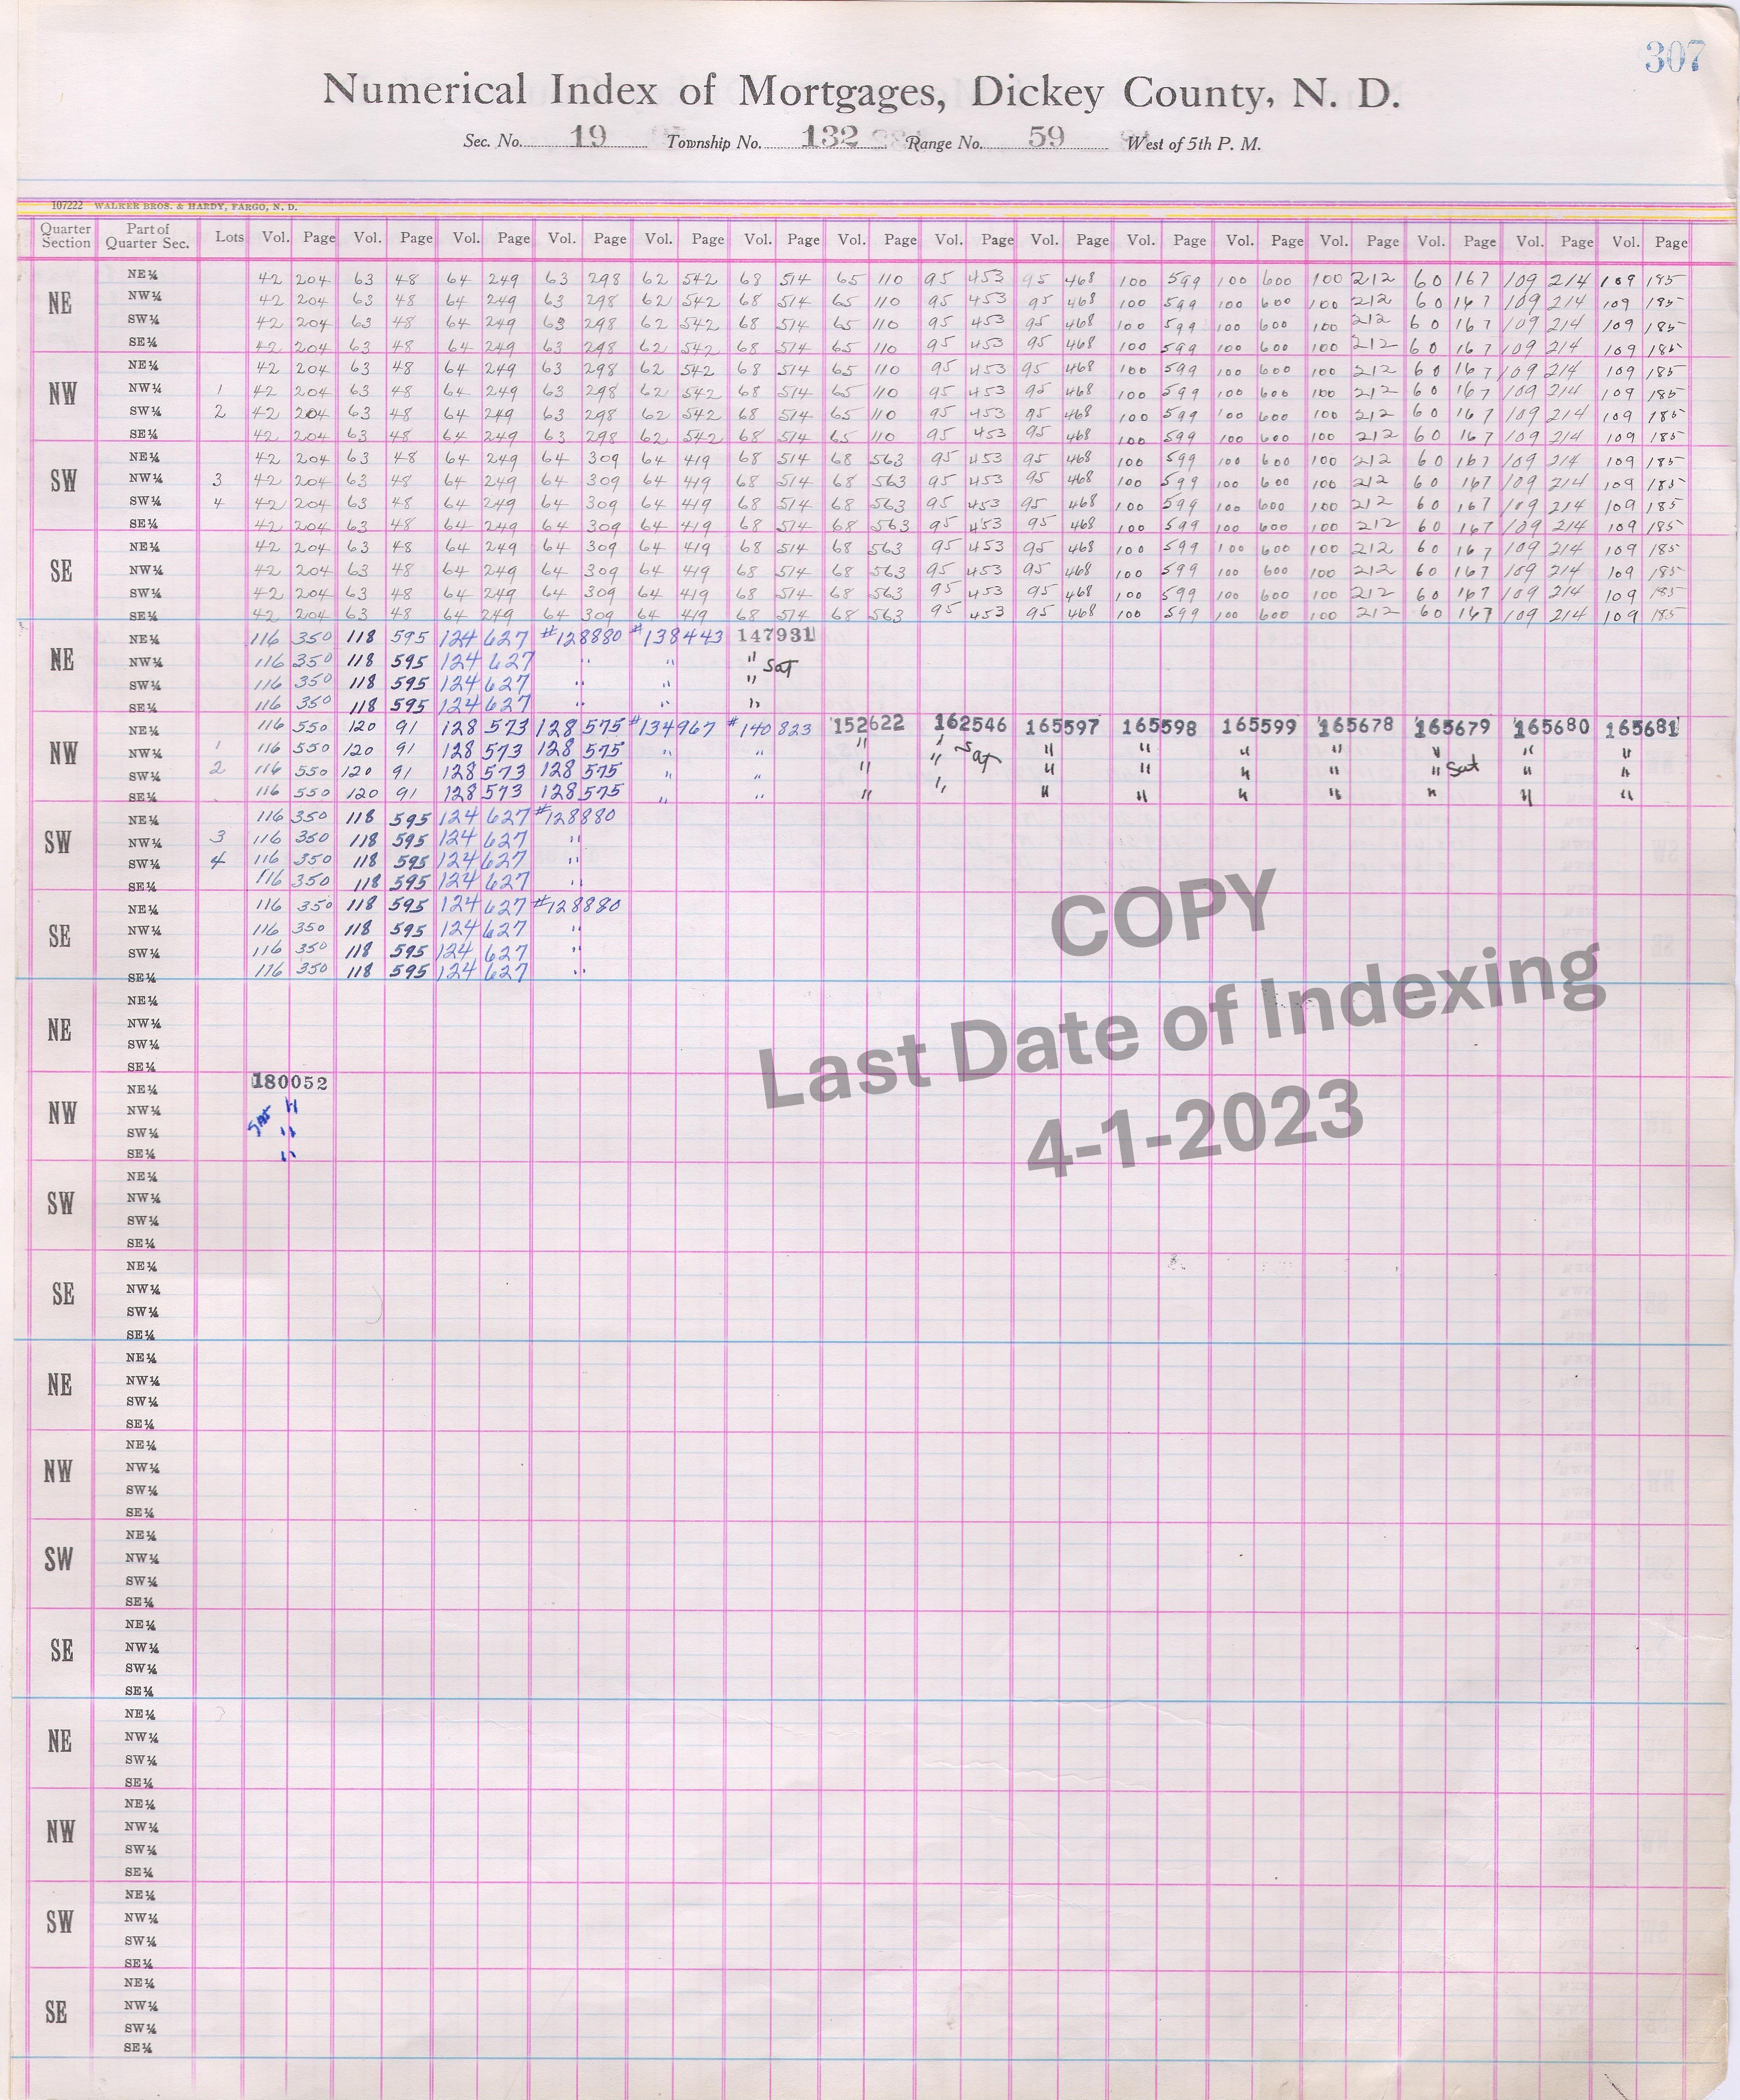 307
Numerical Index of Mortgages, Dickey County, N. D.
Sec. No. 19 Township No. 132 Range No. 59 West of 5th P. M.
107222 WALKER BROS. & HARDY, FARGO, N. D.
Quarter Section Part of Quarter Sec. Lots Vol. Page Vol. Page Vol. Page Vol. Page Vol. Page Vol. Page Vol. Page Vol. Page Vol. Page Vol. Page Vol. Page Vol. Page Vol. Page Vol. Page Vol. Page
NE NE¼ 42 204 63 48 64 249 63 298 62 542 68 514 65 110 95 453 95 468 100 599 100 600 100 212 60 167 109 214 109 185
NW¼ 42 204 63 48 64 249 63 298 62 542 68 514 65 110 95 453 95 468 100 599 100 600 100 212 60 167 109 214 109 185
SW¼ 42 204 63 48 64 249 63 298 62 542 68 514 65 110 95 453 95 468 100 599 100 600 100 212 60 167 109 214 109 185
SE¼ 42 204 63 48 64 249 63 298 62 542 68 514 65 110 95 453 95 468 100 599 100 600 100 212 60 167 109 214 109 185
NW NE¼ 42 204 63 48 64 249 63 298 62 542 68 514 65 110 95 453 95 468 100 599 100 600 100 212 60 167 109 214 109 185
NW¼ 1 42 204 63 48 64 249 63 298 62 542 68 514 65 110 95 453 95 468 100 599 100 600 100 212 60 167 109 214 109 185
SW¼ 2 42 204 63 48 64 249 63 298 62 542 68 514 65 110 95 453 95 468 100 599 100 600 100 212 60 167 109 214 109 185
SE¼ 42 204 63 48 64 249 63 298 62 542 68 514 65 110 95 453 95 468 100 599 100 600 100 212 60 167 109 214 109 185
SW NE¼ 42 204 63 48 64 249 64 309 64 419 68 514 68 563 95 453 95 468 100 599 100 600 100 212 60 167 109 214 109 185
NW¼ 3 42 204 63 48 64 249 64 309 64 419 68 514 68 563 95 453 95 468 100 599 100 600 100 212 60 167 109 214 109 185
SW¼ 4 42 204 63 48 64 249 64 309 64 419 68 514 68 563 95 453 95 468 100 599 100 600 100 212 60 167 109 214 109 185
SE¼ 42 204 63 48 64 249 64 309 64 419 68 514 68 563 95 453 95 468 100 599 100 600 100 212 60 167 109 214 109 185
SE NE¼ 42 204 63 48 64 249 64 309 64 419 68 514 68 563 95 453 95 468 100 599 100 600 100 212 60 167 109 214 109 185
NW¼ 42 204 63 48 64 249 64 309 64 419 68 514 68 563 95 453 95 468 100 599 100 600 100 212 60 167 109 214 109 185
SW¼ 42 204 63 48 64 249 64 309 64 419 68 514 68 563 95 453 95 468 100 599 100 600 100 212 60 167 109 214 109 185
SE¼ 42 204 63 48 64 249 64 309 64 419 68 514 68 563 95 453 95 468 100 599 100 600 100 212 60 167 109 214 109 185
NE NE¼ 116 350 118 595 124 627 #128880 #138443 147931
NW¼ 116 350 118 595 124 627 " " " Sat
SW¼ 116 350 118 595 124 627 " " "
SE¼ 116 350 118 595 124 627 " " "
NW NE¼ 116 550 120 91 128 573 128 575 #134967 #140823 152622 162546 165597 165598 165599 165678 165679 165680 165681
NW¼ 1 116 550 120 91 128 573 128 575 " " " " " " " " " " "
SW¼ 2 116 550 120 91 128 573 128 575 " " " " Sat " " " " " Sat " "
SE¼ 116 550 120 91 128 573 128 575 " " " " " " " " " " "
SW NE¼ 116 350 118 595 124 627 #128880
NW¼ 3 116 350 118 595 124 627 "
SW¼ 4 116 350 118 595 124 627 "
SE¼ 116 350 118 595 124 627 "
SE NE¼ 116 350 118 595 124 627 #128880
NW¼ 116 350 118 595 124 627 "
SW¼ 116 350 118 595 124 627 "
SE¼ 116 350 118 595 124 627 "
COPY
Last Date of Indexing
4-1-2023
NE NE¼
NW¼
SW¼
SE¼
NW NE¼ 180052
NW¼ "
SW¼ Sat "
SE¼ "
SW NE¼
NW¼
SW¼
SE¼
SE NE¼
NW¼
SW¼
SE¼
NE NE¼
NW¼
SW¼
SE¼
NW NE¼
NW¼
SW¼
SE¼
SW NE¼
NW¼
SW¼
SE¼
SE NE¼
NW¼
SW¼
SE¼
NE NE¼
NW¼
SW¼
SE¼
NW NE¼
NW¼
SW¼
SE¼
SW NE¼
NW¼
SW¼
SE¼
SE NE¼
NW¼
SW¼
SE¼